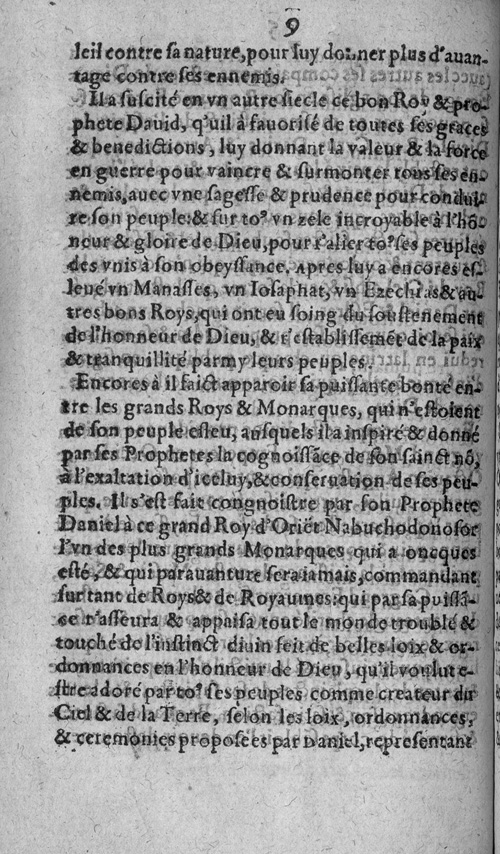 9
leil contre sa nature, pour luy donner plus d'auan-
tage contre ses ennemis.
Il a suscité en vn autre siecle ce bon Roy & pro-
phete Dauid, qu'il à fauorisé de toutes ses graces
& benedictions, luy donnant la valeur & la force
en guerre pour vaincre & surmonter tous ses en-
nemis, auec vne sagesse & prudence pour condui-
re son peuple: & sur toꝰ vn zele incroyable à l'hõ-
neur & gloire de Dieu, pour r'alier toꝰ ses peuples
des vnis à son obeyssance. Apres luy a encores es-
leué vn Manasses, vn Iosaphat, vn Ezechias & au-
tres bons Roys, qui ont eu soing du soustenement
de l'honneur de Dieu, & r'establissemẽt de la paix
& tranquillité parmy leurs peuples.
Encores à il faict apparoir sa puissante bonté en-
tre les grands Roys & Monarques, qui n'estoient
de son peuple esleu, ausquels il a inspiré & donné
par ses Prophetes la cognoissãce de son sainct nõ,
à l'exaltation d'iceluy, & conseruation de ses peu-
ples. Il s'est fait congnoistre par son Prophete
Daniel à ce grand Roy d'Oriẽt Nabuchodonosor
l'vn des plus grands Monarques qui a oncques
esté, & qui parauanture sera iamais, commandant
sur tant de Roys & de Royaumes: qui par sa puissã-
ce r'asseura & appaisa tout le monde troublé &
touché de l'instinct diuin feit de belles loix & or-
donnances en l'honneur de Dieu, qu'il voulut e-
stre adoré par toꝰ ses peuples comme createur du
Ciel & de la Terre, selon les loix, ordonnances,
& ceremonies proposées par Daniel, representant